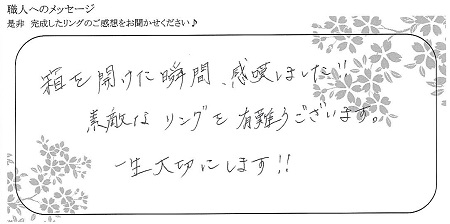 職人へのメッセージ
是非 完成したリングのご感想をお聞かせください♪
箱を開けた瞬間、感嘆しました!!
素敵な リングを 有難うございます。
一生大切にします!!